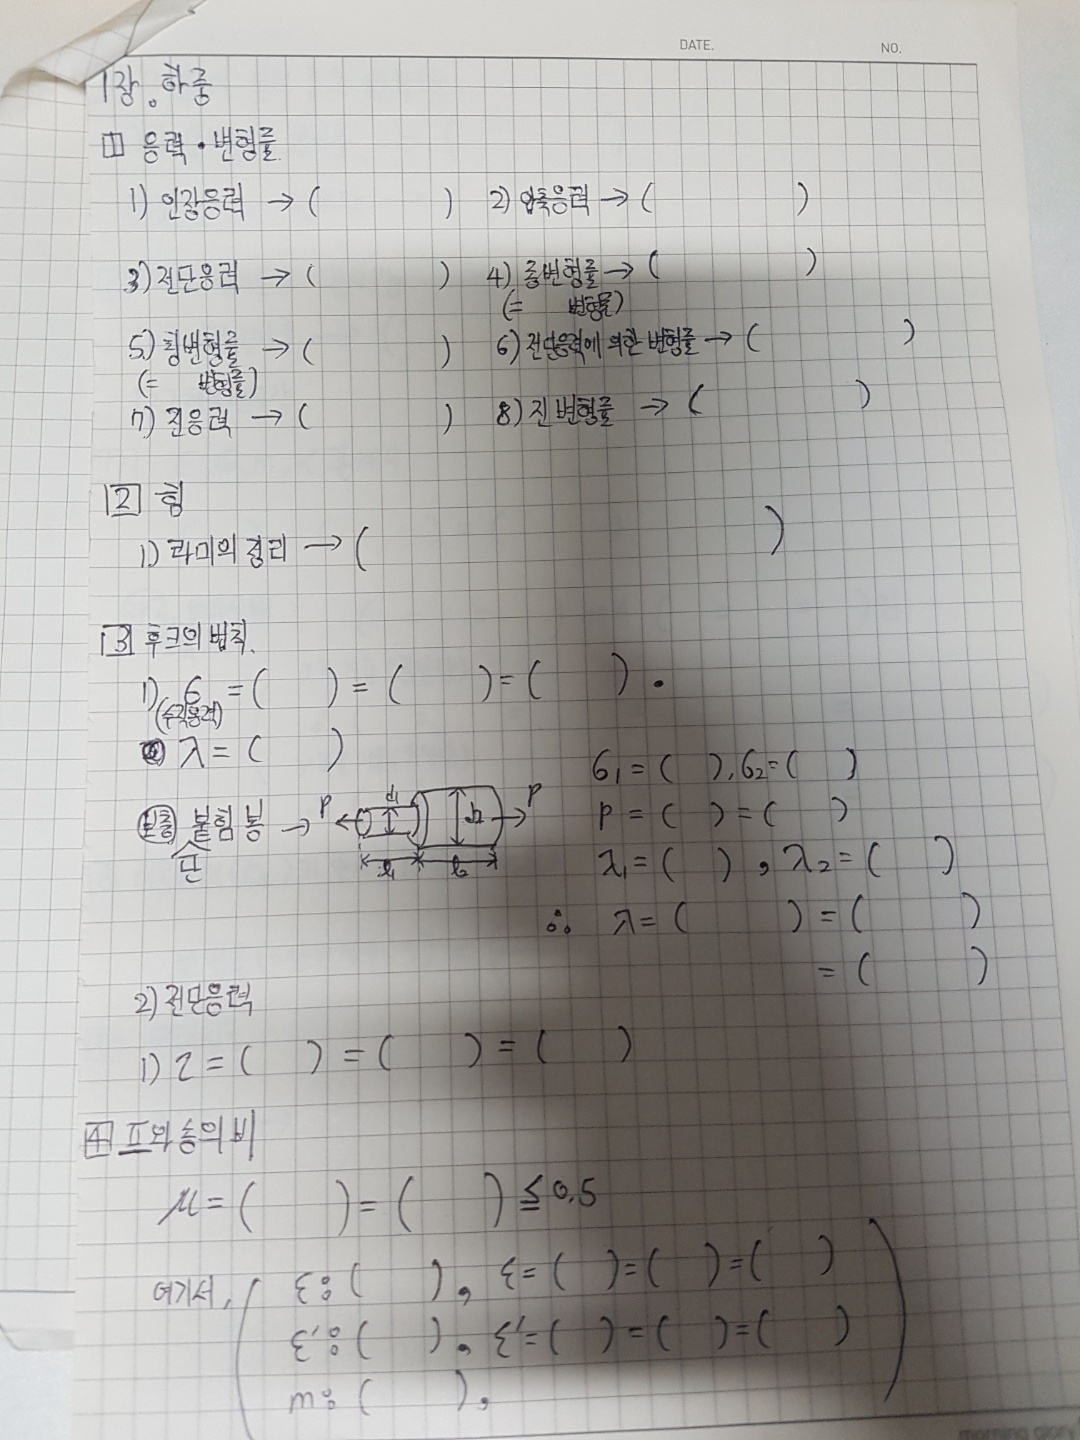 DATE. NO.
1장. 하중
1 응력·변형률.
1) 인장응력 → ( ) 2) 압축응력 → ( )
3) 전단응력 → ( ) 4) 종변형률 → ( )
(= 변형률)
5) 횡변형률 → ( ) 6) 전단응력에 의한 변형률 → ( )
(= 변형률)
7) 진응력 → ( ) 8) 진변형률 → ( )
2 힘
1) 라미의 정리 → ( )
3 후크의 법칙.
1) σ = ( ) = ( ) = ( ).
(수직응력)
λ = ( )
σ₁ = ( ), σ₂ = ( )
보충 붙힘봉 → P d₁ d₂ P
단
ℓ₁ ℓ₂
P = ( ) = ( )
λ₁ = ( ), λ₂ = ( )
∴ λ = ( ) = ( )
= ( )
2) 전단응력
1) τ = ( ) = ( ) = ( )
4 프와송의 비
μ = ( ) = ( ) ≦ 0.5
여기서, ε : ( ), ε = ( ) = ( ) = ( )
ε' : ( ), ε' = ( ) = ( ) = ( )
m : ( ),
morning glory